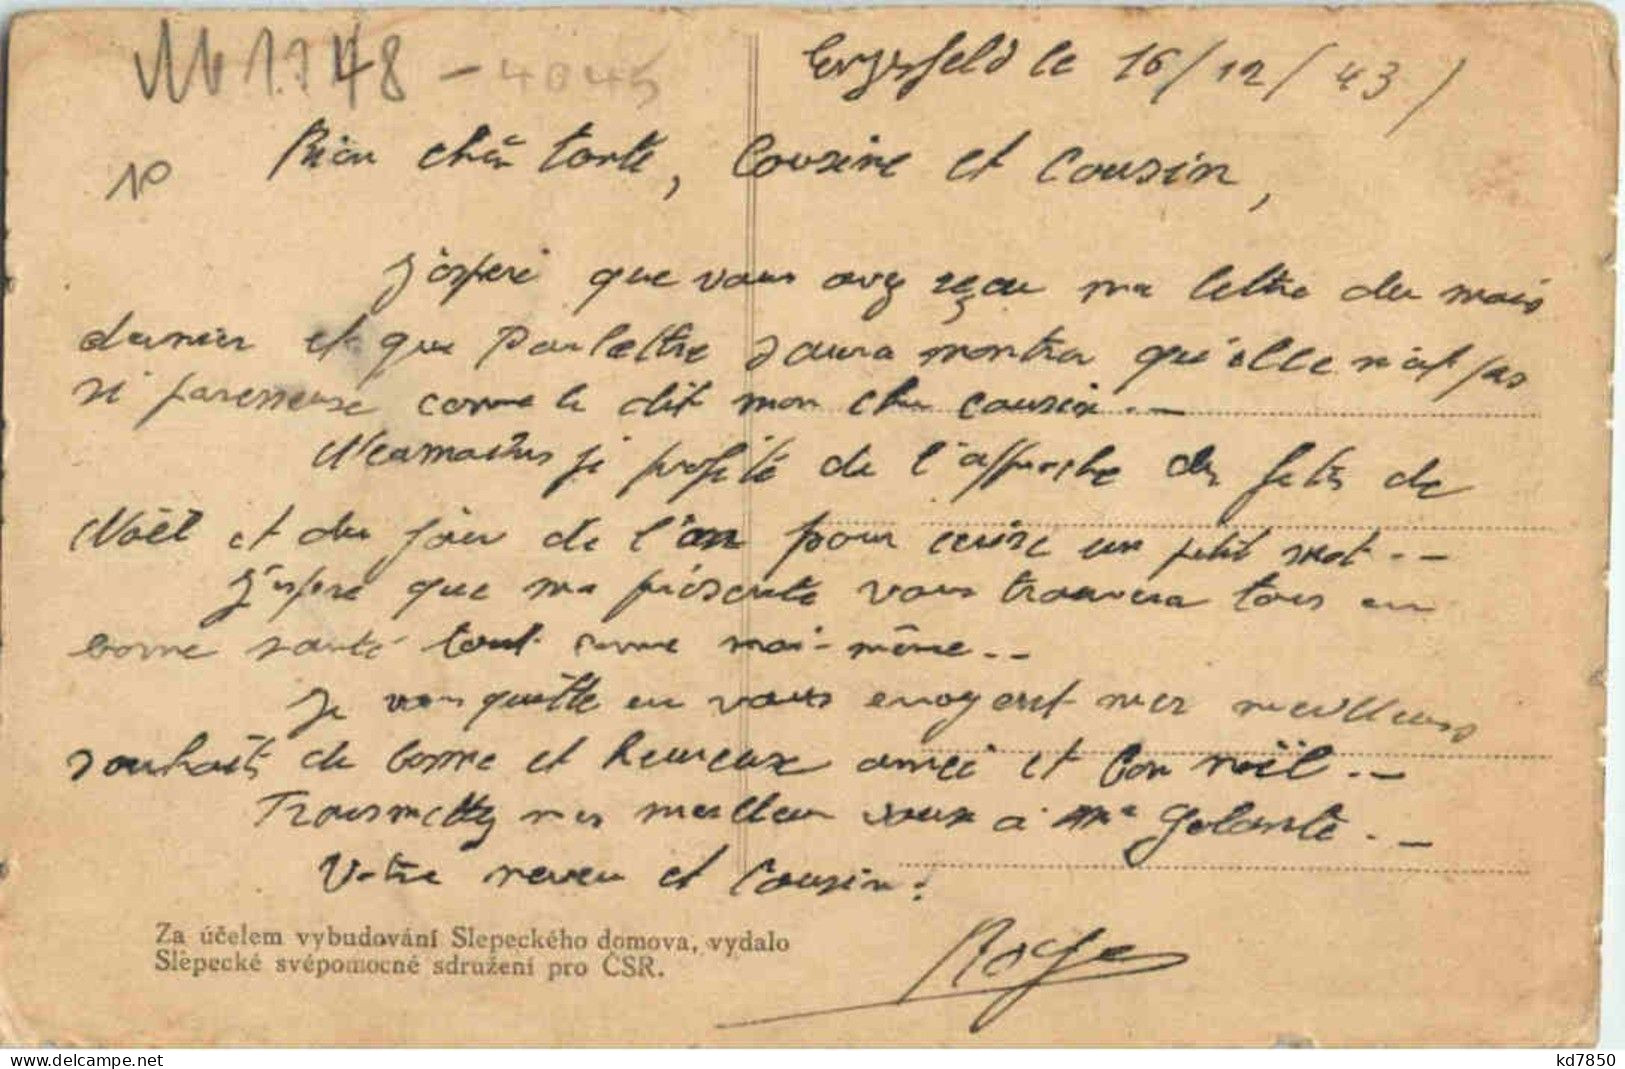 1748 - 4045
le 16/12/43/
N°
Bien chère tante, Cousine et Cousin,
J'espere que vous avez reçu ma lettre du mois
dernier et que Paulette saura montrer qu'elle n'est pas
si paresseuse comme le dit mon cher cousin. -
Neamoins je profite de l'approche des fetes de
Noël et du jour de l'an pour ecrire un petit mot. -
J'espere que ma présente vous trouvera tous en
bonne santé tout comme moi-même. -
Je vous quitte en vous envoyent mes meilleurs
souhaits de bonne et heureuse année et bon noël. -
Transmettez mes meilleur voeux a Mme . -
Votre neveu et Cousin.
Roger
Za účelem vybudování Slepeckého domova, vydalo
Slepecké svépomocné sdružení pro ČSR.
kd7850